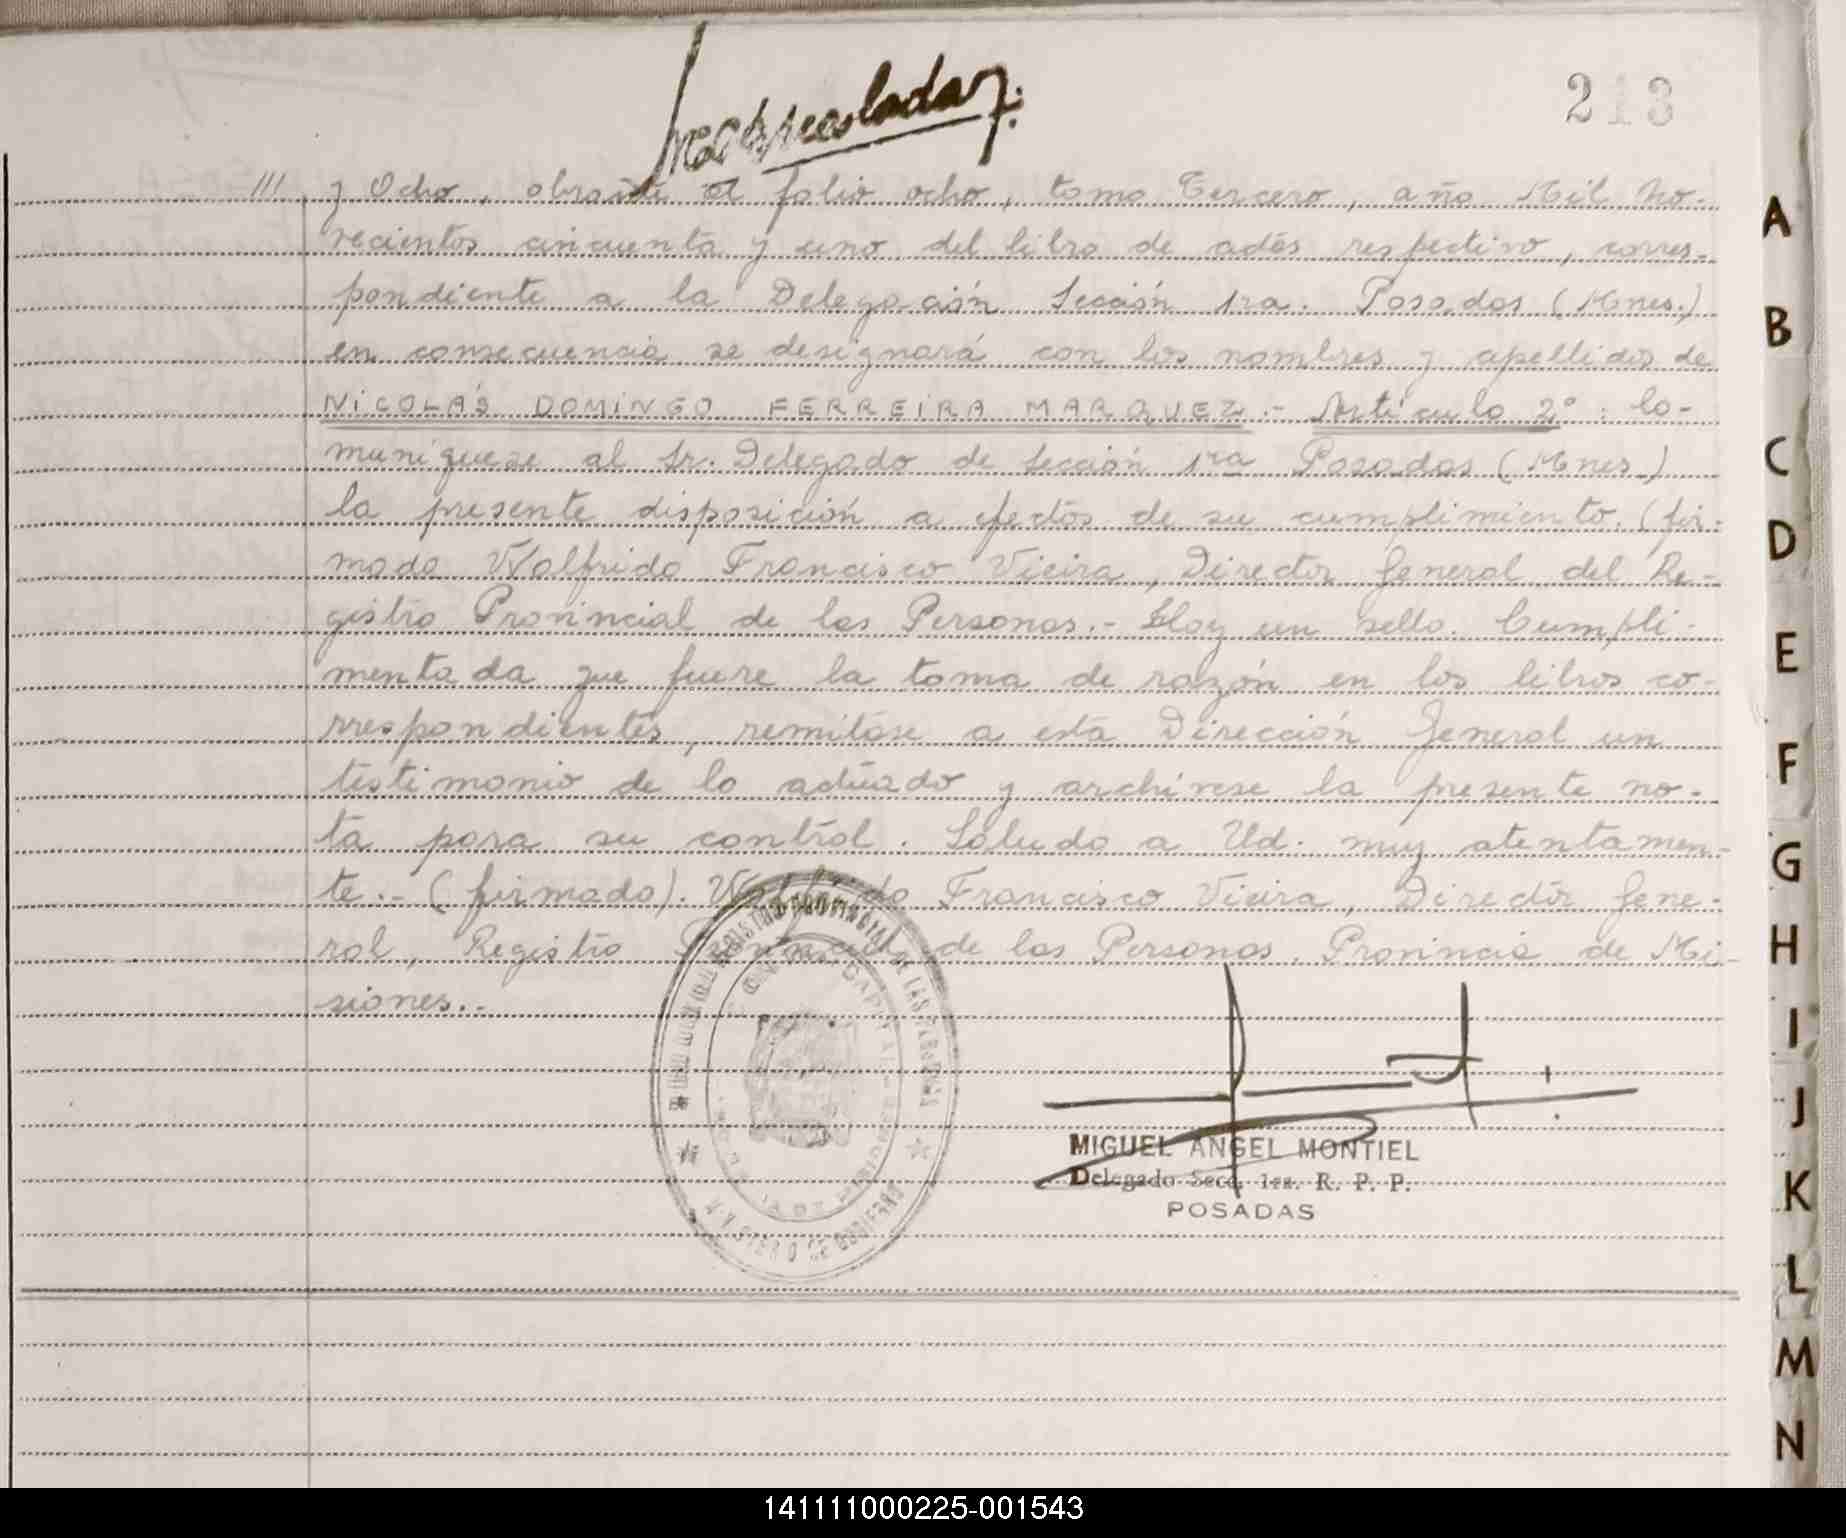 213
/// y Ocho, obrante al folio ocho, tomo Tercero, año Mil No-
vecientos cincuenta y uno, del libro de actas respectivo, corres-
pondiente a la Delegación Sección 1ra. Posadas (Mnes.)
en consecuencia se designará con los nombres y apellidos de
NICOLÁS DOMINGO FERREIRA MARQUEZ.- Artículo 2°: Co-
muníquese al Sr. Delegado de Sección 1ra Posadas (Mnes)
la presente disposición a efectos de su cumplimiento. (fir-
mado Walfrido Francisco Vieira, Director General del Re-
gistro Provincial de las Personas.- Hay un sello. Cumpli-
mentada que fuere la toma de razón en los libros co-
rrespondientes, remítase a esta Dirección General un
testimonio de lo actuado y archívese la presente no-
ta para su control. Saludo a Ud. muy atentamen-
te.- (firmado). Walfrido Francisco Vieira, Director Gene-
ral, Registro Provincial de las Personas. Provincia de Mi-
siones.-
REGISTRO PROVINCIAL DE LAS PERSONAS
MINISTERIO DE GOBIERNO
MIGUEL ANGEL MONTIEL
Delegado Secc. 1ra. R. P. P.
POSADAS
A
B
C
D
E
F
G
H
I
J
K
L
M
N
141111000225-001543